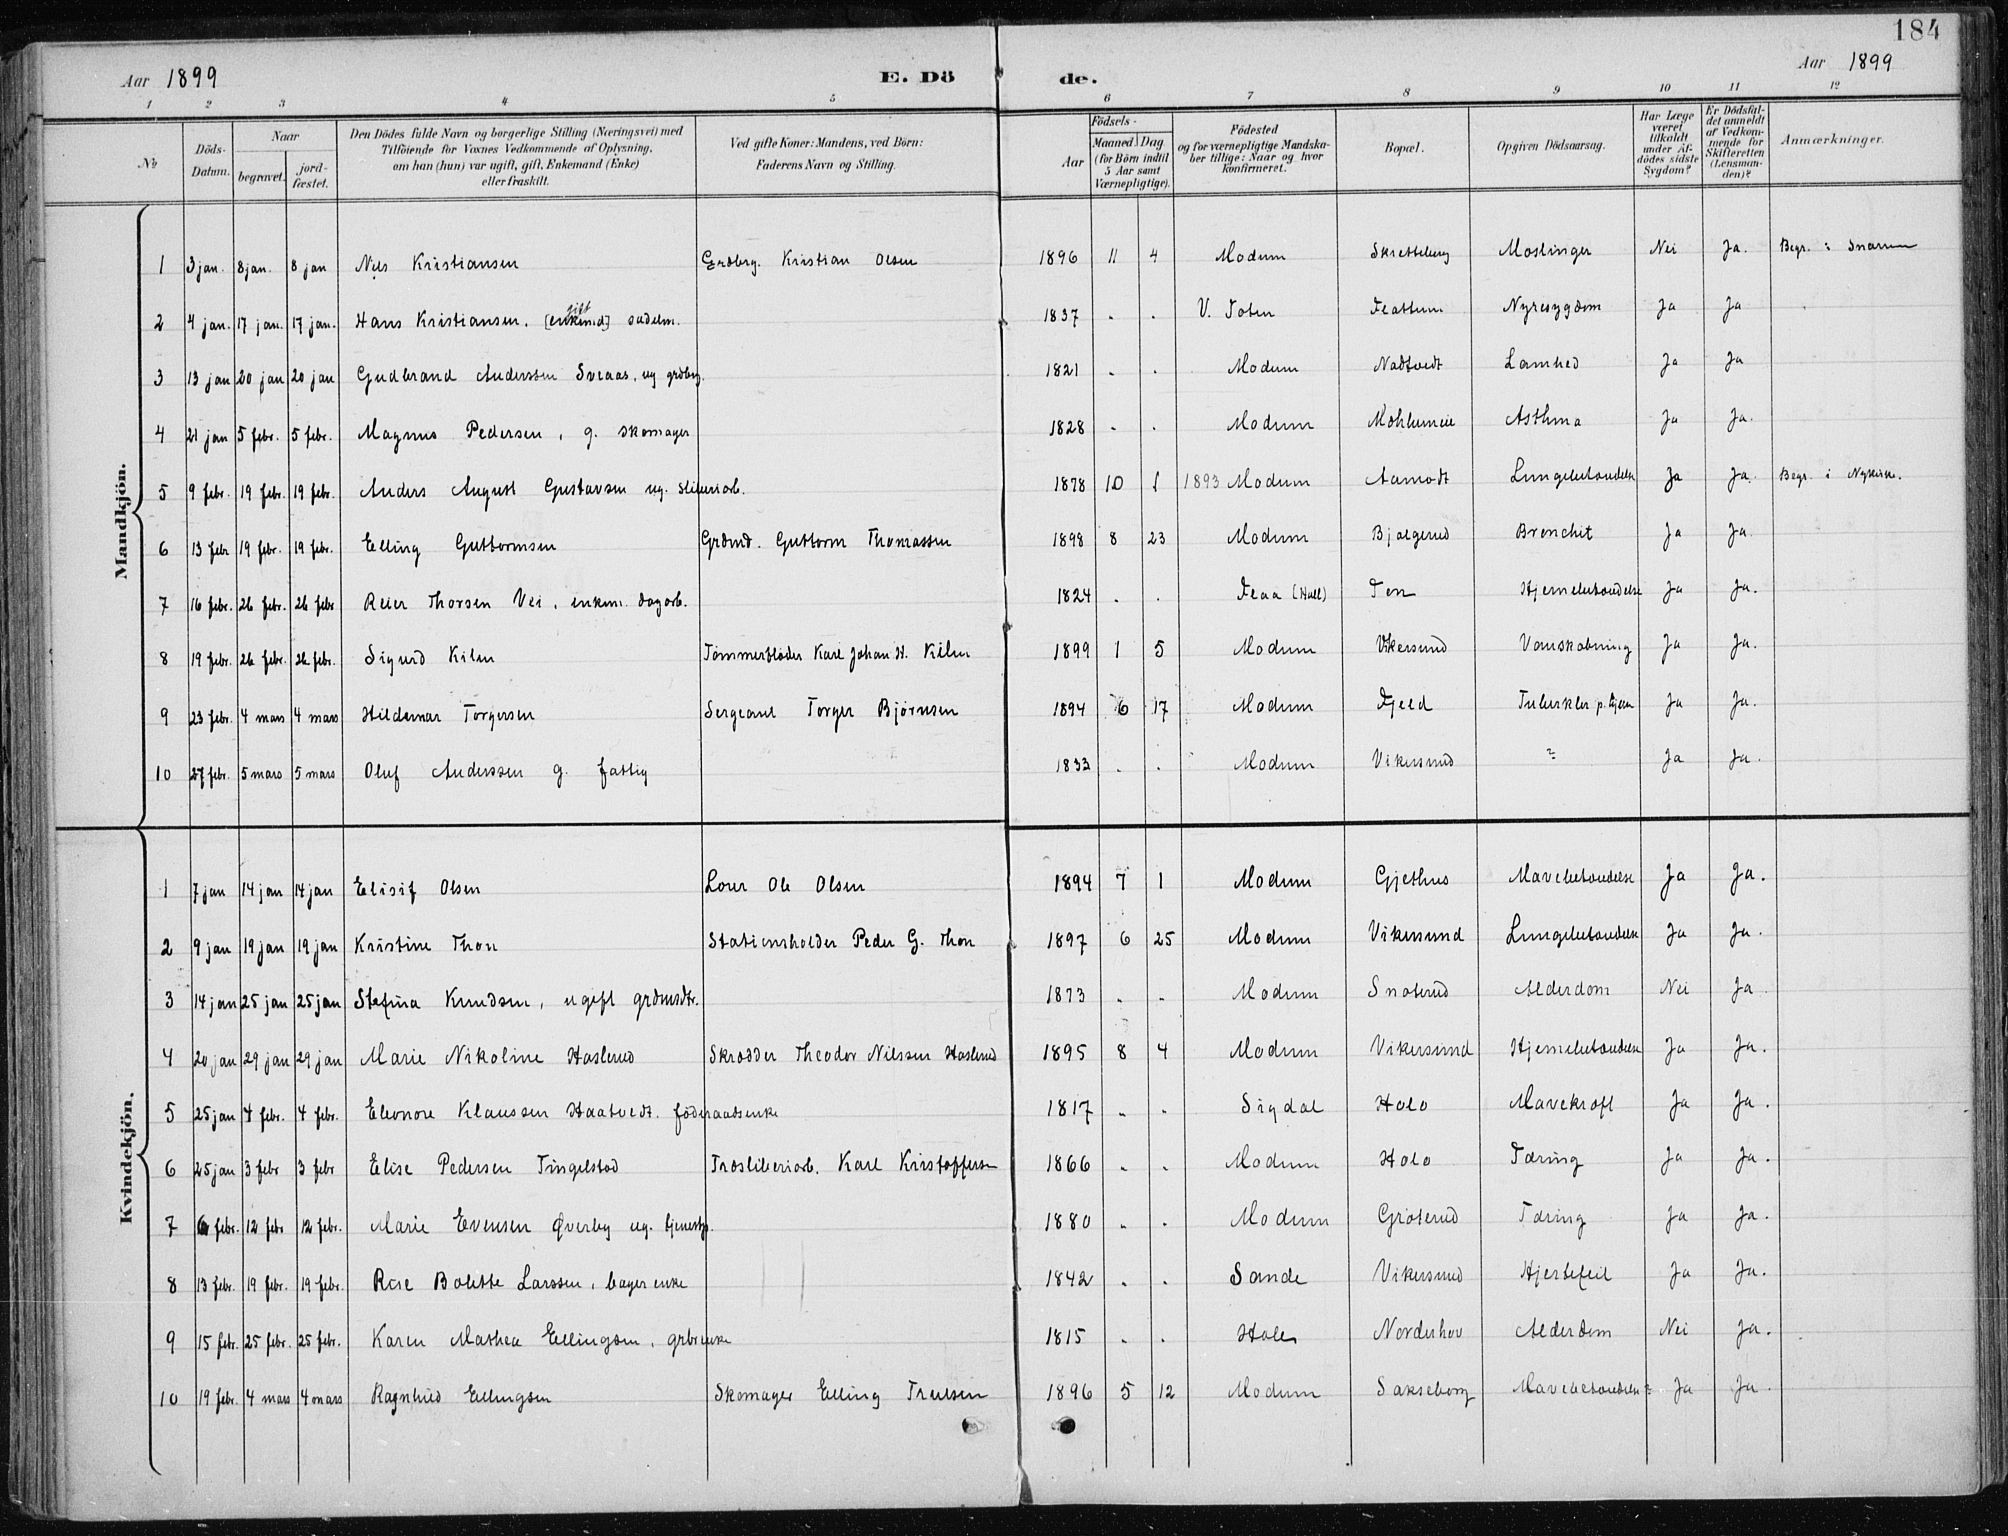 184
Aar 1899 E. Dö de. Aar 1899
1 2 3 4 5 6 7 8 9 10 11 12
No
Döds-Datum.
Naar
begravet.
jord-fæstet.
Den Dödes fulde Navn og borgerlige Stilling (Næringsvei) med
Tilföiende for Voxnes Vedkommende af Oplysning,
om han (hun) var ugift, gift, Enkemand (Enke)
eller fraskilt.
Ved gifte Koner: Mandens, ved Börn:
Faderens Navn og Stilling.
Födsels-
Aar
Maaned Dag
(for Börn indtil
5 Aar samt
Værnepligtige).
Födested
og for værnepligtige Mandska-
ber tillige: Naar og hvor
konfirmeret.
Bopæl.
Opgiven Dödsaarsag.
Har Læge
været
tilkaldt
under Af-
dödes sidste
Sygdom?
Er Dödsfal-
det anmeldt
af Vedkom-
mende for
Skifteretten
(Lensman-
den)?
Anmærkninger.
Mandkjön.
1 3 jan. 8 jan. 8 jan Nils Kristiansen Grdbrg. Kristian Olsen 1896 11 4 Modum Skretteberg Meslinger Nei Ja. Begr. i Snarum
2 4 jan. 17 jan. 17 jan. Hans Kristiansen, [enkemd] gift sadelm. 1837 . . V. Toten Flattum Nyresygdom Ja Ja
3 13 jan 20 jan 20 jan Gudbrand Anderssen Sveaas, ug grdbrg. 1821 . . Modum Nadtvedt Lamhed Ja Ja
4 21 jan 5 febr. 5 febr. Magnus Pedersen, g. skomager 1828 . . Modum Asthma Ja Ja.
5 9 febr. 19 febr. 19 febr. Anders August Gustavsen ug. sliberiarb. 1878 10 1 1893 Modum Aamodt Lungebetændelse Ja Ja. Begr. i Nykirke.
6 13 febr 19 febr. 19 febr. Elling Guttormsen Grdmd. Guttorm Thomassen 1898 8 23 Modum Bjølgerud Bronchit Ja Ja.
7 16 febr. 26 febr. 26 febr Reier Thorsen Vei, enkem. dagarb. 1824 . . Flaa (Hall) Ton Hjernebetændelse Ja Ja.
8 19 febr. 26 febr. 26 febr. Sigurd Kilen Tømmerfløder Karl Johan H. Kilen 1899 1 5 Modum Vikersund Vanskabning Ja Ja.
9 23 febr. 4 mars 4 mars Hildemar Torgersen Sergeant Torger Bjørnsen 1894 6 17 Modum Fjeld Tuberkler p. hjern Ja Ja.
10 27 febr. 5 mars 5 mars Oluf Anderssen g. fattig 1833 . . Modum Vikersund ? Ja Ja.
Kvindekjön.
1 7 jan 14 jan 14 jan Elisif Olsen Ole Olsen 1894 7 1 Modum Gjethus Mavebetændelse Ja Ja.
2 9 jan 19 jan 19 jan Kristine Thon Stationsholder Peder G. Thon 1897 6 25 Modum Vikersund Lungebetændelse Ja Ja.
3 14 jan 25 jan 25 jan Stefina Knudsen, ugift grdmsdtr. 1873 . . Modum Snaterud Alderdom Nei Ja
4 20 jan 29 jan 29 jan Marie Nikoline Haslerud Skrædder Theodor Nilssen Haslerud 1895 8 4 Modum Vikersund Hjernebetændelse Ja Ja.
5 25 jan 4 febr. 4 febr. Eleonore Klaussen Haatvedt. föderaadsenke 1817 . . Sigdal Holo Mavekræft Ja Ja.
6 25 jan 3 febr 3 febr Elise Pedersen Tingelstad Træsliberiarb. Karl Kristoffersen 1866 . . Modum Holo Tæring Ja Ja.
7 6 febr. 12 febr 12 febr. Marie Evensen Øverby ug. tjenestp. 1880 . . Modum Grøterud Tæring Ja Ja.
8 13 febr. 19 febr. 19 febr. Bolette Larssen, bager enke 1842 . . Sande Vikersund Hjertefeil Ja Ja.
9 15 febr. 25 febr. 25 febr. Karen Mathea Ellingsen, grbrenke 1815 . . Hole Norderhov Alderdom Nei Ja.
10 19 febr. 4 mars 4 mars Ragnhild Ellingsen Skomager Elling Trulsen 1896 5 12 Modum Sakseborg Mavebetændelse? Ja Ja.